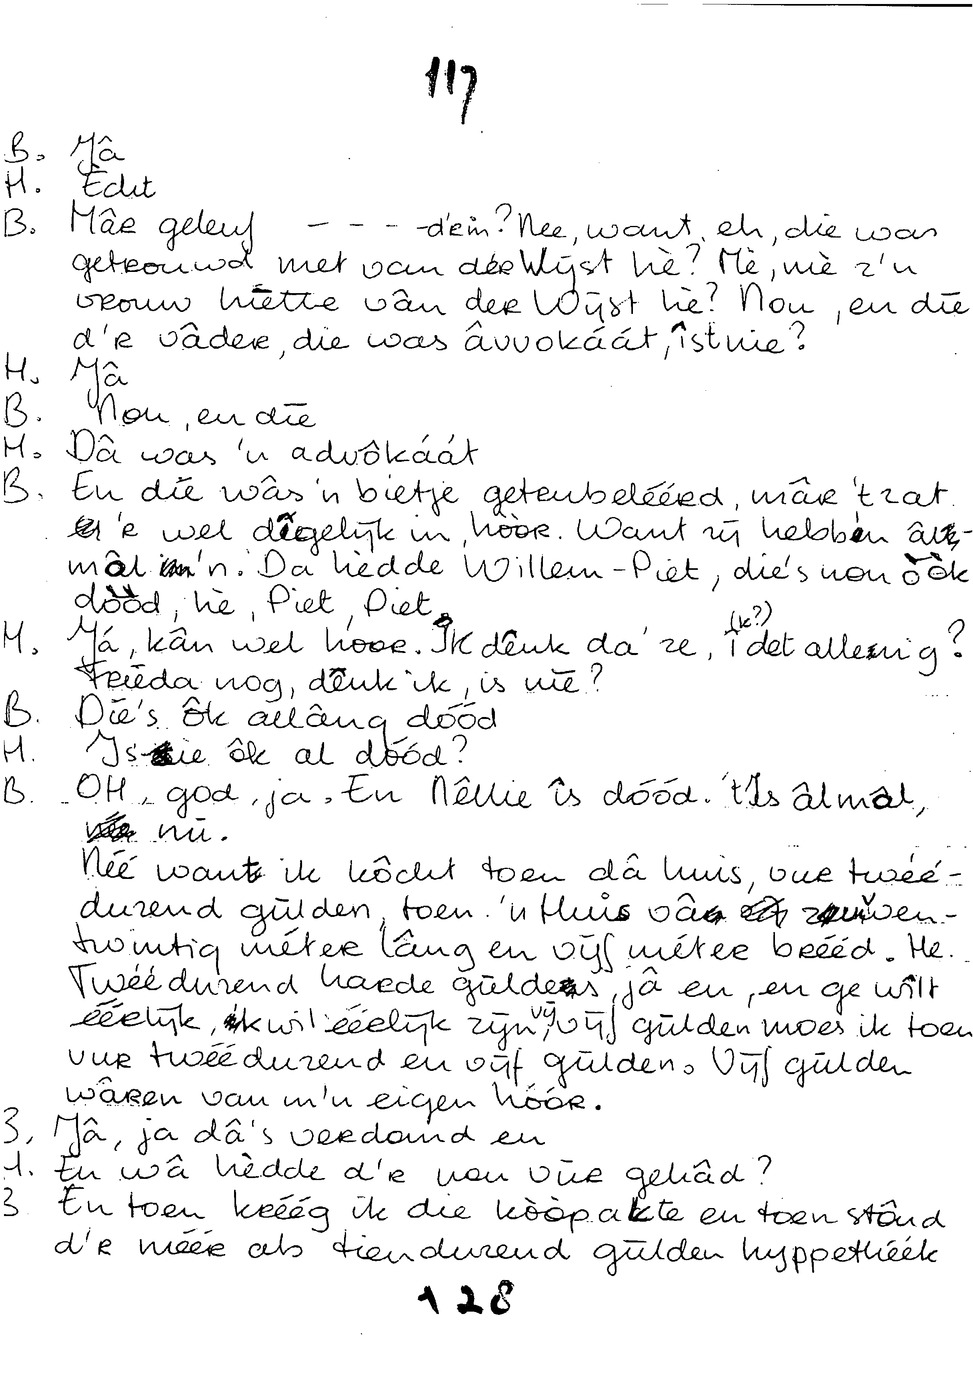 117
B. Jâ
H. Echt
B. Mâr geleuf - - - - d'rin? Nee, want, eh, die was
getrouwd met van dér Wijst hè? Mè, niè z'n
vrouw hiette vân der Wijst hè? Nou, en die
d'r vâder, die was âvvokáát, îst nie?
H. Jâ
B. Nou, en die
H. Dâ was 'n advôkáát
B. En die wâs 'n bietje geteubeléérd, mâr 't zat
'r wel dîgelijk in, hòòr. Want zij hebben âl-
mâl 'n. Da hèdde Willem-Piet, die's nou òòk
dòòd, hè, Piet, Piet.
H. Já, kân wel hoor. Ik dênk da' ze, (k?) i det allenig?
Frieda nog, dênk ik, is nie?
B. Die's ôk allâng dóód
H. Is die ôk al dóód?
B. OH, god, ja. En Nêllie îs dóód. 't Is âlmâl,
nu.
Néé want ik kôcht toen dâ huis, vur twéé-
duzend gulden, toen. 'n Huis vân zeuven-
twintig méter lâng en vijf méter brééd. He.
Twééduzend harde guldens, jâ en, en ge wilt
éérlijk, ik wil éérlijk zijn, vij vijf gulden moes ik toen
vur twééduzend en vijf gulden. Vijf gulden
wâren van m'n eigen hóór.
B. Jâ, ja dâ's verdomd en
H. En wâ hèdde d'r nou vur gehâd?
B En toen krééég ik die kòòpakte en toen stônd
d'r méér als tienduzend gulden hyppethéék
128